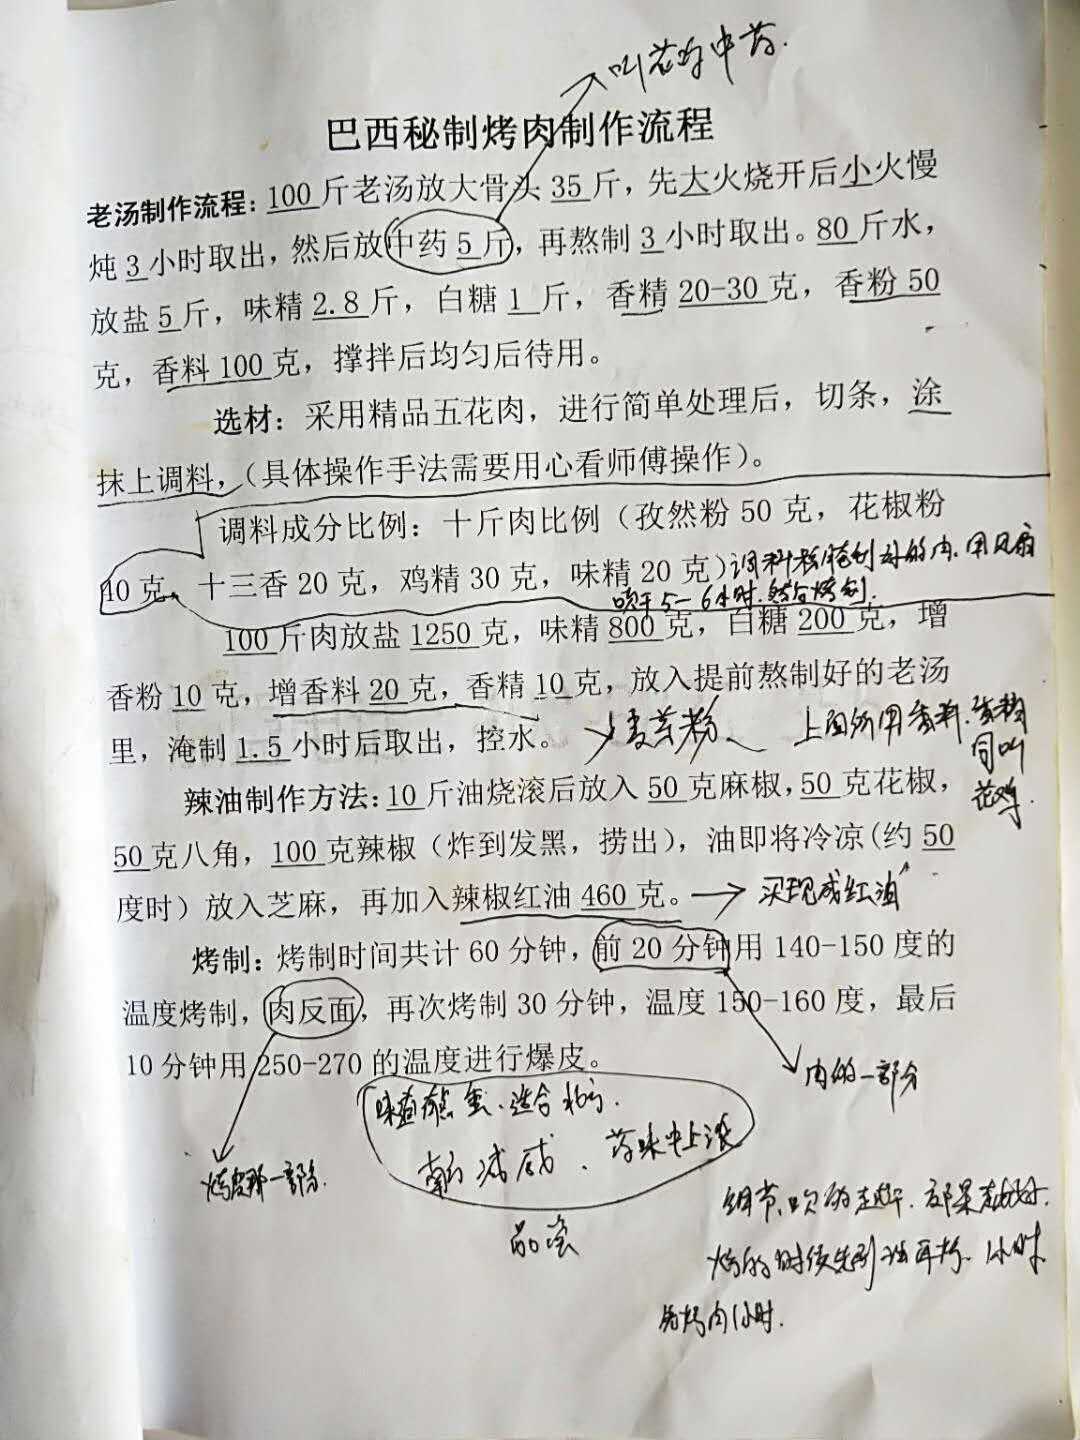 叫花鸡中药.
巴西秘制烤肉制作流程
老汤制作流程：100 斤老汤放大骨头 35 斤，先大火烧开后小火慢
炖 3 小时取出，然后放中药 5 斤，再熬制 3 小时取出。80 斤水，
放盐 5 斤，味精 2.8 斤，白糖 1 斤，香精 20-30 克，香粉 50
克，香料 100 克，撑拌后均匀后待用。
选材：采用精品五花肉，进行简单处理后，切条，涂
抹上调料，（具体操作手法需要用心看师傅操作）。
调料成分比例：十斤肉比例（孜然粉 50 克，花椒粉
10 克、十三香 20 克，鸡精 30 克，味精 20 克）调料粉腌制好的肉.用风扇
喷干5-6小时.然后烤制.
100 斤肉放盐 1250 克，味精 800 克，白糖 200 克，增
香粉 10 克，增香料 20 克，香精 10 克，放入提前熬制好的老汤
里，淹制 1.5 小时后取出，控水。 麦芽粉、 上面所用香料.
同叫
花鸡.
辣油制作方法：10 斤油烧滚后放入 50 克麻椒，50 克花椒，
50 克八角，100 克辣椒（炸到发黑，捞出），油即将冷凉(约 50
度时）放入芝麻，再加入辣椒红油 460 克。 买现成红油
烤制：烤制时间共计 60 分钟，前 20 分钟用 140-150 度的
温度烤制，肉反面，再次烤制 30 分钟，温度 150-160 度，最后
10 分钟用 250-270 的温度进行爆皮。
肉的一部分
味道 适合北方.
南方减咸、药味中上浓
烤皮那一部分.
细节、吹的越干.效果越好.
烤的时候先 1小时
烤肉1小时.